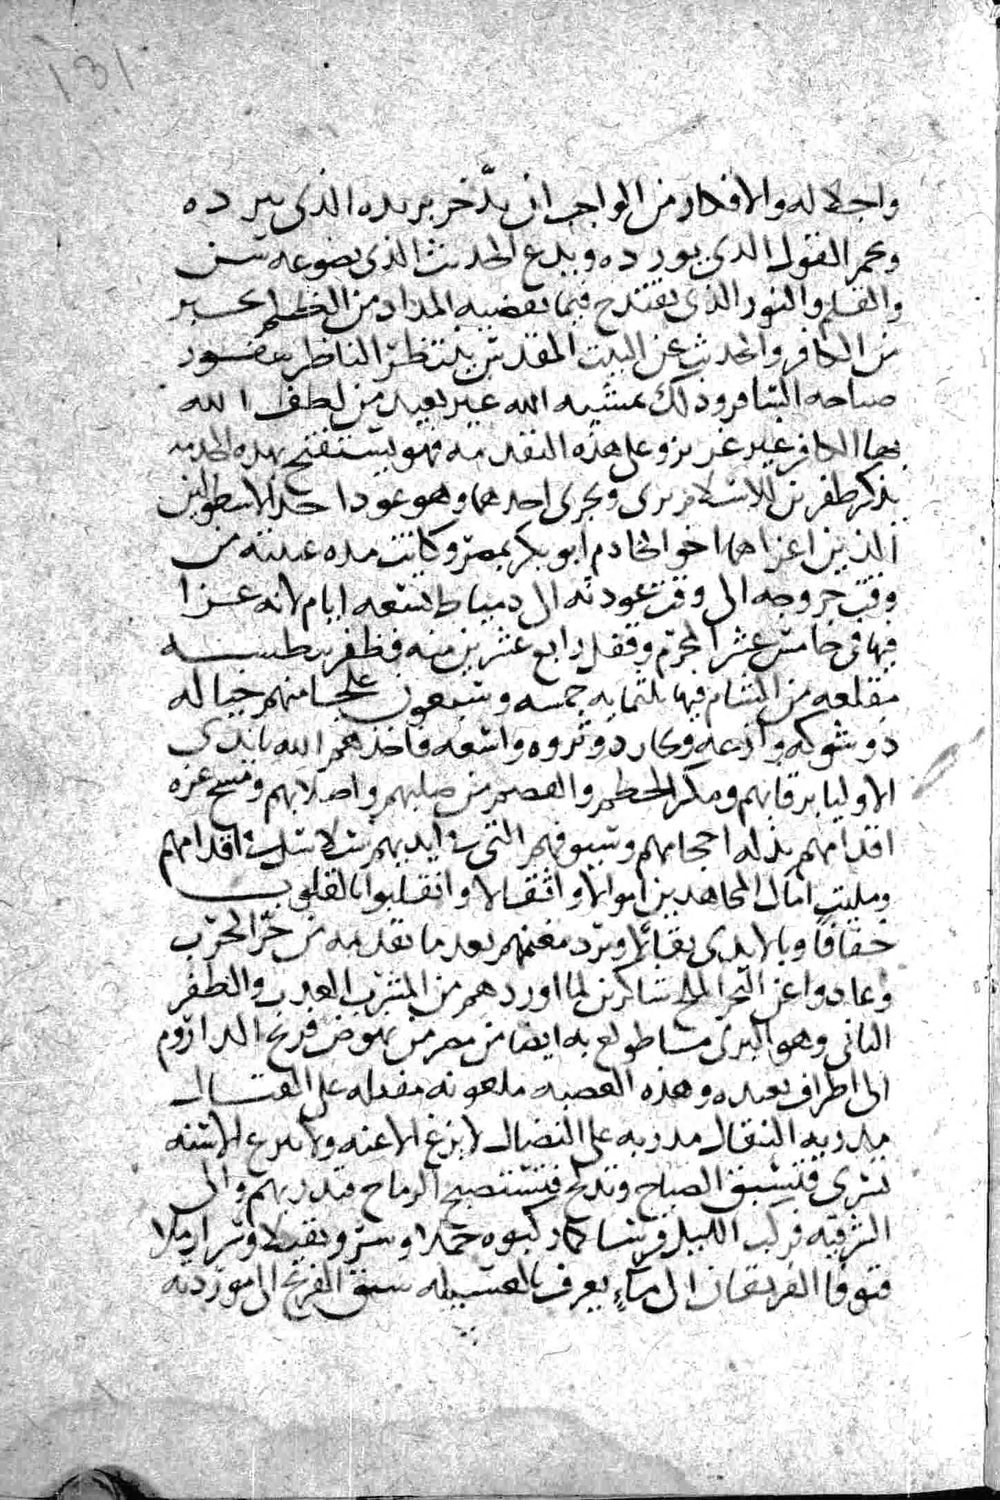 واجلاله والافكار من الواجب ان يدّخر بريده الذى يبرده
وبحمر القول الذى يورده ويدع الحديث الذى يضوعه بين
والقلم والنور الذى يقتدح فيما يقضيه المداد من الظلم بحبر
من الكافر والحديث عن البيت المقدس بل ينتظر الناظر سفور
صباحه السافر وذلك بمشيه الله غير بعيد من لطف الله
بها الكافر غير عزيز وعلى هذه التقدمه فهو يستفتح بهذه الخدمه
بذكر ظفرين للاسلام برى وبحرى احدهما وهو عود احد الاسطولين
الذين اغزاهما اخو الخادم ابو بكر بمصر وكانت مده غيبته من
وقت خروجه الى وقت عودته الى دمياط تسعه ايام لانه غزا
فيها فى خامس عشر المحرم وقفل رابع عشرين منه فظفر ببطسه
مقلعه من الشام فيها ثلثمايه خمسه وسبعون علجا منهم خياله
ذو شوكه وازعه وتجار ذو ثروه واسعه فاخذهم الله بايدى
الاوليا برقابهم ومكن الحطم والقصم من صلبهم واصلابهم وفسح عزه
اقدامهم بذله احجامهم وسيوفهم التى فى ايديهم بسلاسل فى اقدامهم
ومليت امال المجاهدين اموالا واثقالا وانقلبوا بالقلوب
خفافا وبالايدى ثقالا وبرد مغنمهم بعد ما تقدمه من حرّ الحرب
وعادوا عن البحر الملح شاكرين لما اوردهم من المشرب العذب والظفر
الثانى وهو البرى مما طولع به ايضا من مصر من نهوض فرنج الداروم
الى اطراف بعيده وهذه العصبه ملعونه مقدامه على القتال
مدربه النقال مدربه على النضال لا بزع الاعنه ولا بدرع الاسنه
تسرى فتسبق الصباح وتدلج فتستصبح الرماح فنذر بهم والى
الشرقيه فركب الليل فرسا كما ركبوه جملا وسرو ثقيلا وسرا رملا
فتوفا الفريقان الى ماء يعرف بالعسيله سبق الفرنج الى موردته